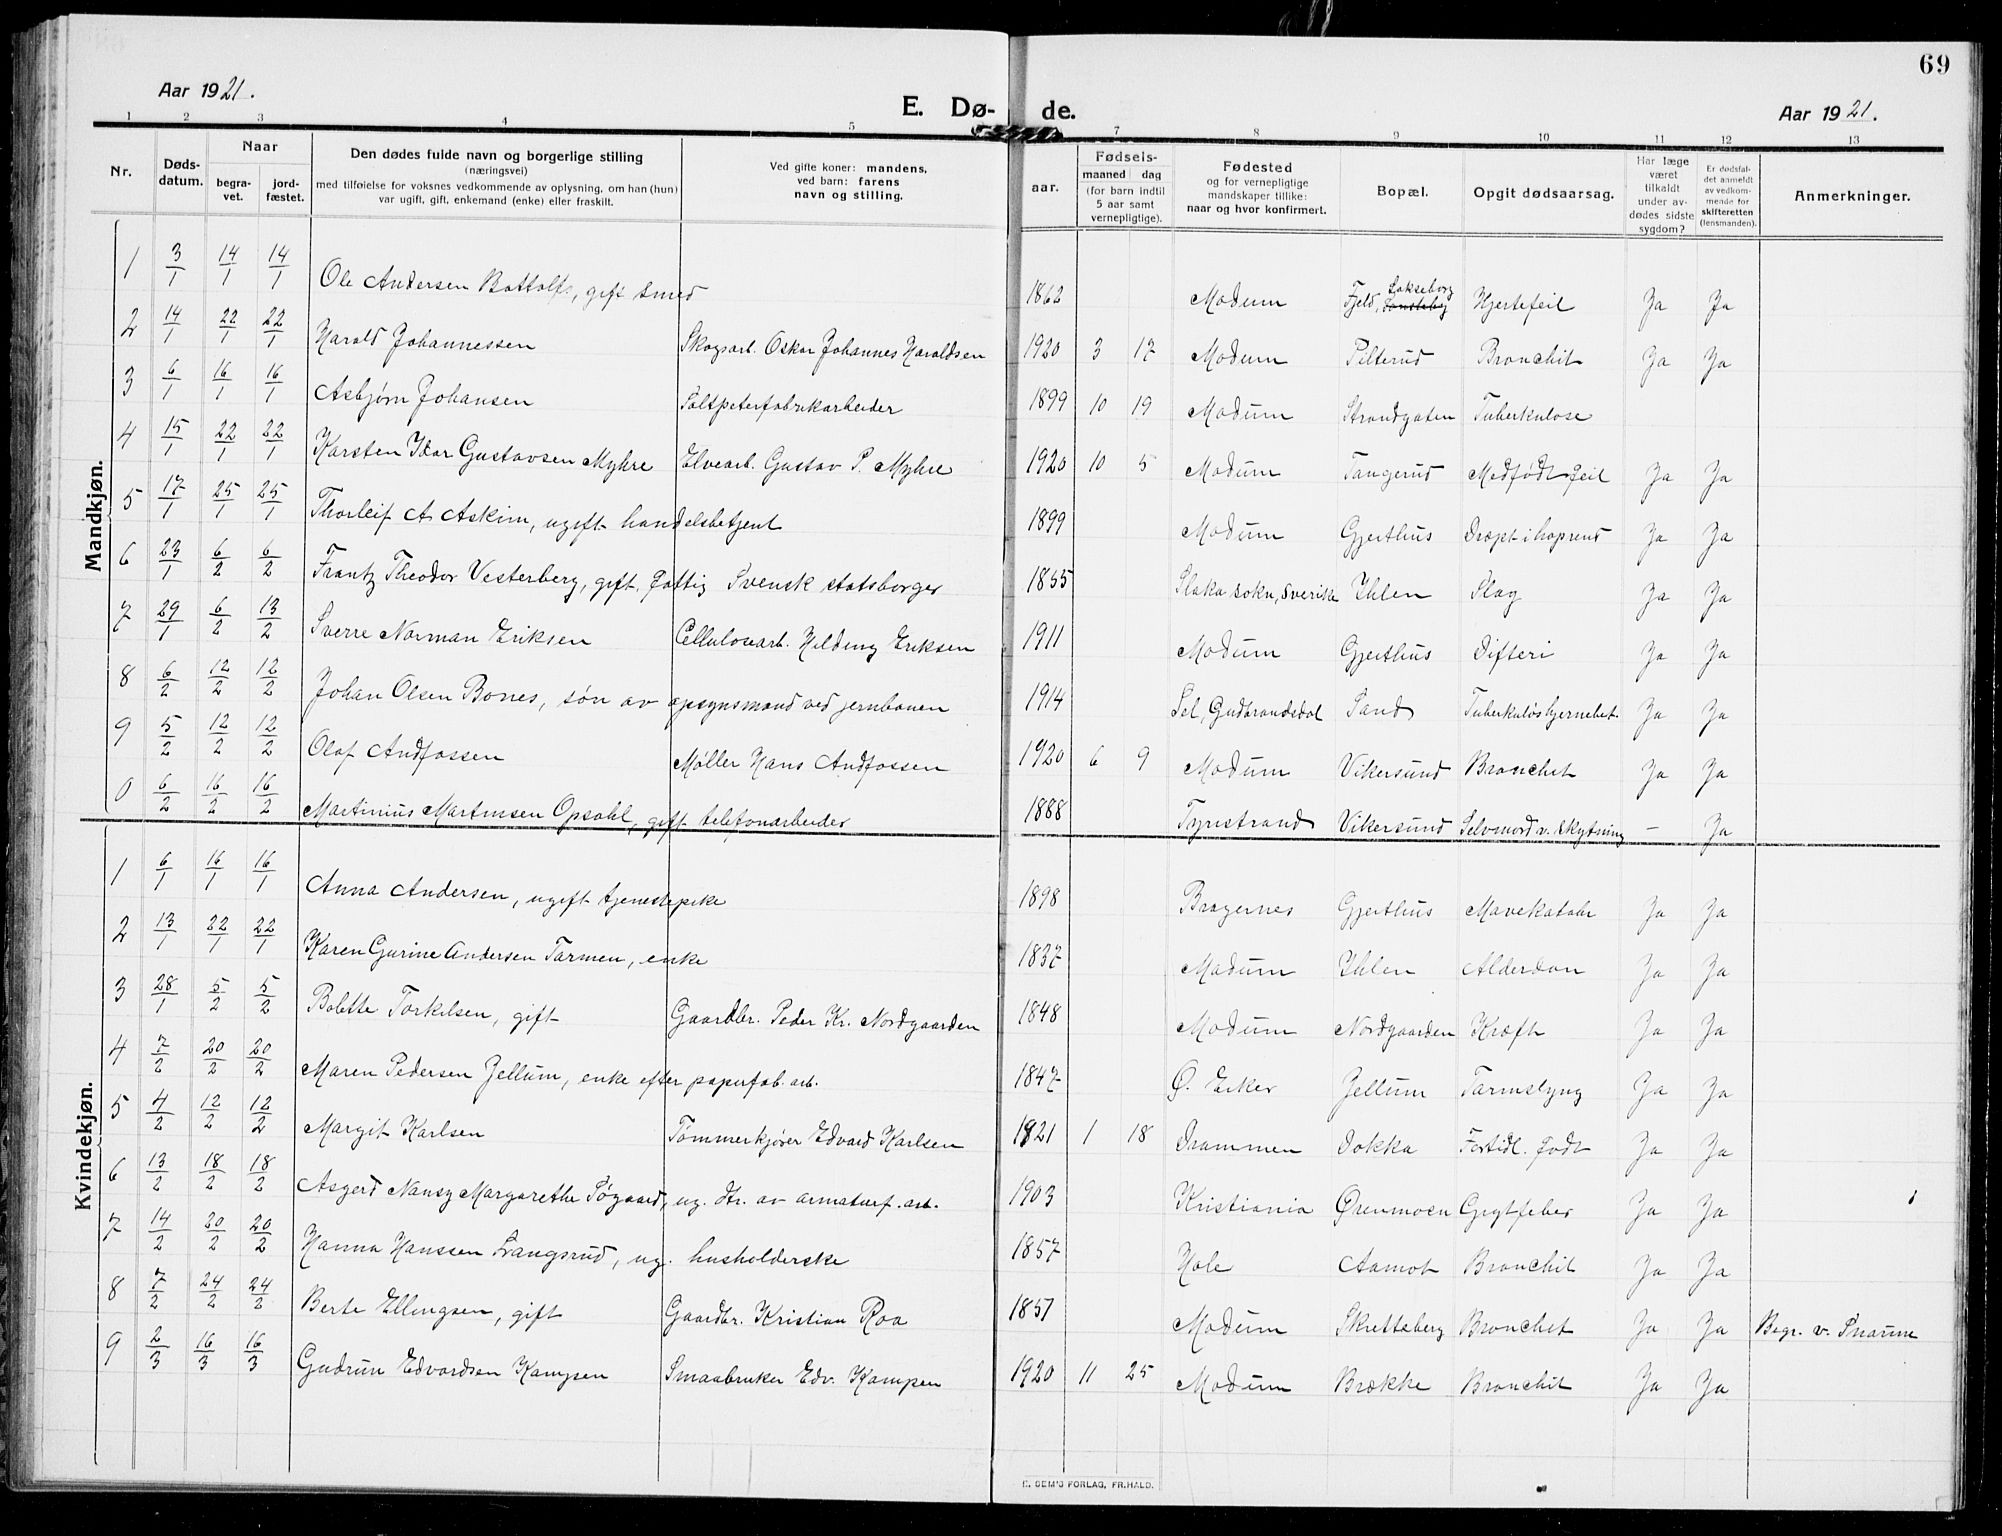 69
Aar 1921.
E. Dø- de.
Aar 1921.
1 2 3 4 5 7 8 9 10 11 12 13
Nr. Døds-datum. Naar begra-vet. jord-fæstet. Den dødes fulde navn og borgerlige stilling (næringsvei) med tilføielse for voksnes vedkommende av oplysning, om han (hun) var ugift, gift, enkemand (enke) eller fraskilt. Ved gifte koner: mandens, ved barn: farens navn og stilling. aar. Fødsels- maaned dag (for barn indtil 5 aar samt vernepligtige). Fødested og for vernepligtige mandskaper tillike: naar og hvor konfirmert. Bopæl. Opgit dødsaarsag. Har læge været tilkaldt under av-dødes sidste sygdom? Er dødsfal-det anmeldt av vedkom-mende for skifteretten (lensmanden). Anmerkninger.
Mandkjøn.
1 3/1 14/1 14/1 Ole Andersen Bottolfs, gift smed 1862 Modum Fjeld, Lokseborg Hjertefeil Ja Ja
2 14/1 22/1 22/1 Harald Johannessen Skogsarb. Oskar Johannes Haraldsen 1920 3 17 Modum Pilterud Bronchit Ja Ja
3 6/1 16/1 16/1 Asbjørn Johansen Saltpeterfabrikarbeider 1899 10 19 Modum Strandgaten Tuberkulose
4 15/1 22/1 22/1 Karsten Ivar Gustavsen Myhre Elvearb. Gustav P. Myhre 1920 10 5 Modum Tangerud Medfødt feil Ja Ja
5 17/1 25/1 25/1 Thorleif A Askim, ugift handelsbetjent 1899 Modum Gjerthus Dræpt i hoprend Ja Ja
6 23/1 6/2 6/2 Frantz Theodor Vesterberg, gift fattig Svensk statsborger 1855 Slaka sokn, Sverike Ihlen Slag Ja Ja
7 29/1 6/2 13/2 Sverre Norman Eriksen Cellulosearb. Hilding Eriksen 1911 Modum Gjerthus Difteri Ja Ja
8 6/2 12/2 12/2 Johan Olsen Bones, søn av opsynsmand ved jernbanen 1914 Sel, Gudbrandsdal Sand Tuberkuløs hjernebet. Ja Ja
9 5/2 12/2 12/2 Olaf Andfossen Møller Hans Andfossen 1920 6 9 Modum Vikersund Bronchit Ja Ja
0 6/2 16/2 16/2 Martinius Martinsen Opsahl, gift telefonarbeider 1888 Tyristrand Vikersund Selvmord v. skytning – Ja
Kvindekjøn.
1 6/1 16/1 16/1 Anna Andersen, ugift tjenestepike 1898 Bragernes Gjerthus Mavekatahr Ja Ja
2 13/1 22/1 22/1 Karen Gurine Andersen Tarmen, enke 1837 Modum Ihlen Alderdom Ja Ja
3 28/1 5/2 5/2 Bolette Torkilsen, gift Gaardbr. Peder Kr. Nordgaarden 1848 Modum Nordgaarden Kræft Ja Ja
4 7/2 20/2 20/2 Maren Pedersen Jellum, enke efter papirfab. arb. 1847 Ø. Eiker Jellum Tarmslyng Ja Ja
5 4/2 12/2 12/2 Margit Karlsen Tømmerkjører Edvard Karlsen 1921 1 18 Drammen Dokka Fortidl. født Ja Ja
6 13/2 18/2 18/2 Asgerd Nansy Margarethe Søgaard, ug. dtr. av armaturf. arb. 1903 Kristiania Ørenmoen Gigtfeber Ja Ja
7 14/2 20/2 20/2 Hanna Hanssen Frangsrud, ug. husholderske 1857 Hole Aamot Bronchit Ja Ja
8 7/2 24/2 24/2 Berte Ellingsen, gift Gaardbr. Kristian Roa 1857 Modum Skretteberg Bronchit Ja Ja Begr. v. Snarum
9 2/3 16/3 16/3 Gudrun Edvardsen Kampen Smaabruker Edv. Kampen 1920 11 25 Modum Brække Bronchit Ja Ja
E. SEM'S FORLAG, FR.HALD.